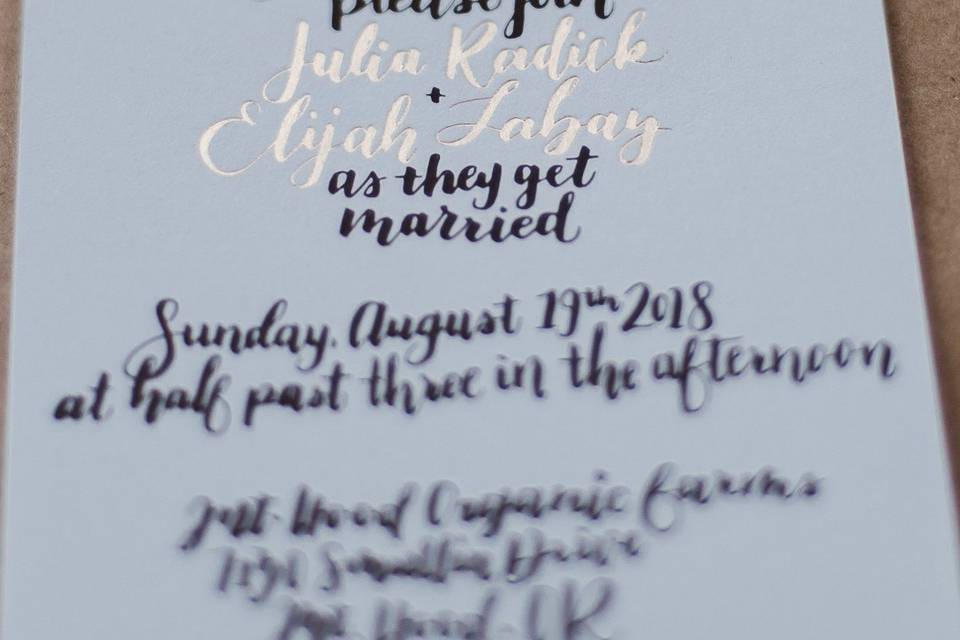 please join
Julia Radick
+
Elijah Labay
as they get
married
Sunday, August 19th 2018
at half past three in the afternoon
Mt. Hood Organic Farms
Drive
Mt. Hood, OR